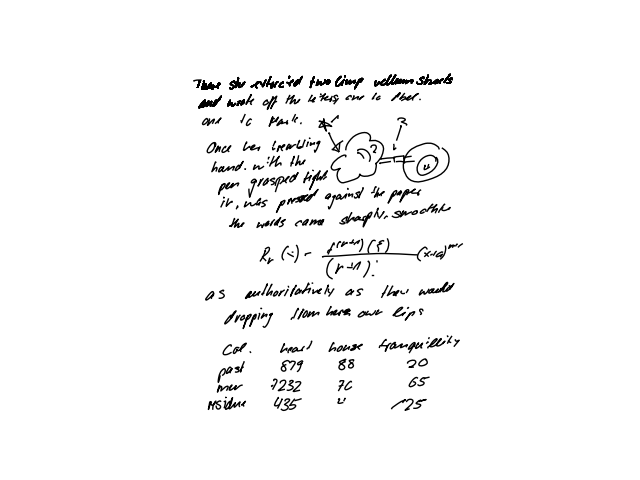 There she extracted two limp vellum sheets
and wrote off the letters, one to Abel.
one to Mark.
Once her trembling
hand. with the
pen grasped tight
in, was pressed against the paper
the words came sharply, smoothly
R_n(x) = f^(n+1)(ξ) / (n+1)! (x-a)^n+1
as authoritatively as they would
dropping from her own lips
Col. heart house tranquility
past 879 88 20
7232 70 65
residue 435 4 25